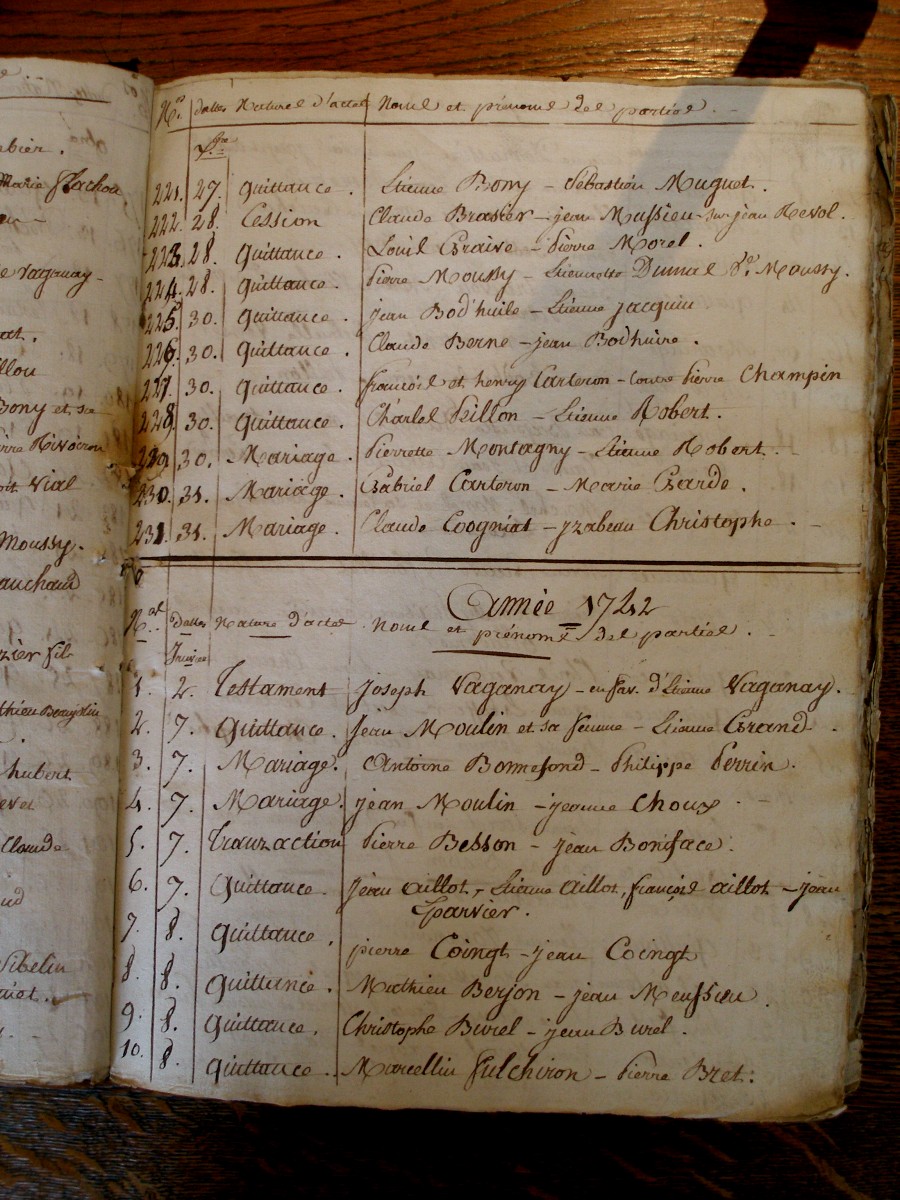 bier.
Marie Flachou
e Vaganay
at.
llou
Bony et sa
Vial
Moussy.
auchaud
hubert
evet
Claude
ud
Sibelin
N.os dattes Nature d'actes Noms et prénoms des parties.
7.bre
221. 27. Quittance. Etienne Bony - Sébastien Muguet.
222. 28. Cession Claude Brasier - jean Mussieu - sur jean Revol.
223. 28. Quittance. Louis Graive - Pierre Morel.
224. 28. Quittance. Pierre Moussy - Etiennette Dumas Moussy.
225. 30. Quittance. jean Bod'huile - Etienne jacquin
226. 30. Quittance. Claude Berne - jean Bodhuire.
227. 30. Quittance. françois et henry Carteron - Contre Pierre Champin
228. 30. Quittance. Charles Peillon - Etienne Robert.
229. 30. Mariage. Pierrette Montagny - Etienne Robert.
230. 31. Mariage. Gabriel Carteron - Marie Garde.
231. 31. Mariage. Claude Coogniat - yzabeau Christophe.
Année 1742
N.os Dattes Nature d'actes Noms et prénoms des parties.
Janvier
1. 2. Testament joseph Vaganay - en fav. d'Etienne Vaganay.
2. 7. Quittance. Jean Moulin et sa femme - Etienne Grand.
3. 7. Mariage. Antoine Bonnefond - Philippe Perrin.
4. 7. Mariage. jean Moulin - jeanne Choux
5. 7. Tranzaction Pierre Besson - jean Boniface.
6. 7. Quittance. Jean aillot, Etienne aillot, françois aillot - jean
Eparvier.
7. 8. Quittance. pierre Coingt - jean Coingt
8. 8. Quittance. Mathieu Berjon - jean Meussieu.
9. 8. Quittance. Christophe Burel - jean Burel.
10. 8. Quittance. Marcellin Fulchiron - Pierre Bret.